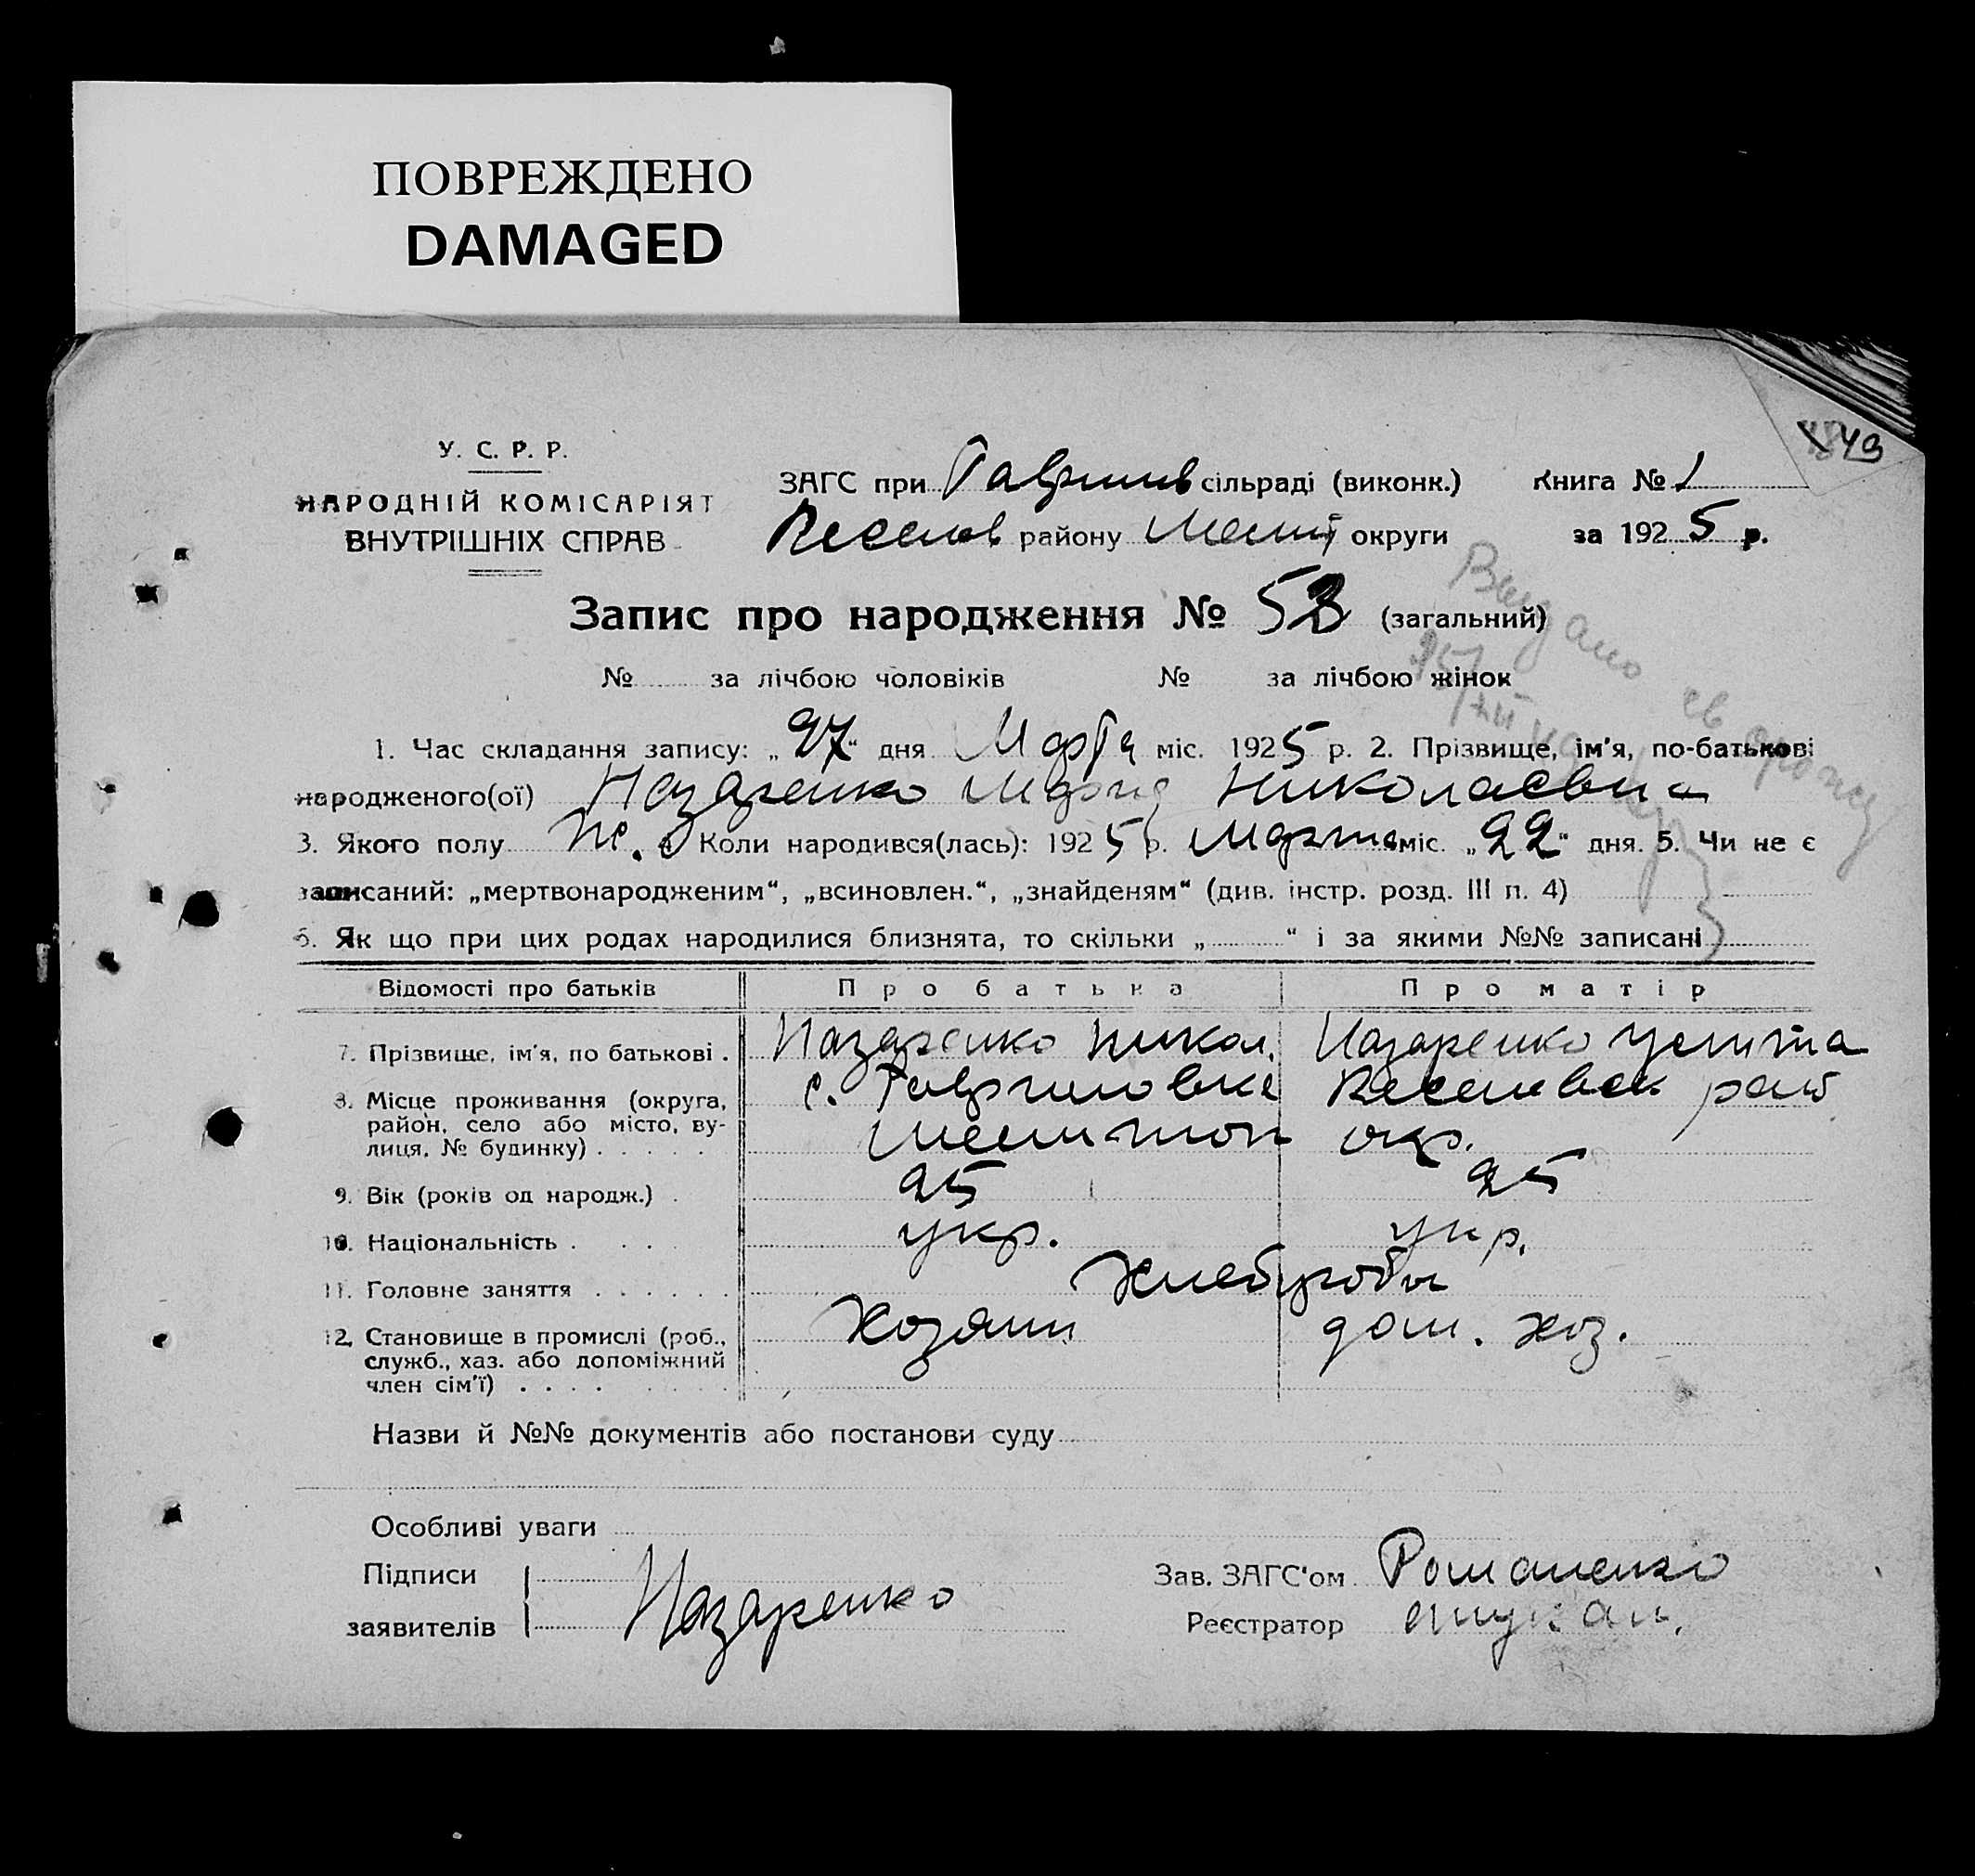 ПОВРЕЖДЕНО
DAMAGED
49
У. С. Р. Р.
НАРОДНІЙ КОМІСАРІЯТ
ВНУТРІШНІХ СПРАВ
ЗАГС при Гаврилив сільраді (виконк.) Книга № 1
Веселов району Мелит округи за 1925 р.
Запис про народження № 53 (загальний)
№ за лічбою чоловіків № за лічбою жінок
Видано
1. Час складання запису: „27“ дня Марта міс. 1925 р. 2. Прізвище, ім'я, по-батькові
народженого(ої) Назаренко Мария Николаевна
3. Якого полу ж. 4 Коли народився(лась): 1925 р. Марта міс. „22“ дня. 5. Чи не є
записаний: „мертвонародженим“, „всиновлен.“, „знайденям“ (див. інстр. розд. III п. 4)
6. Як що при цих родах народилися близнята, то скільки „ “ і за якими №№ записані
Відомості про батьків Про батька Про матір
7. Прізвище, ім'я, по батькові . Назаренко Никол. Назаренко Улита
8. Місце проживання (округа, с. Гавриловка Веселовск рай
район, село або місто, ву-
лиця, № будинку) . . . . . Мелитоп окр.
9. Вік (років од народж.) . 25 25
10. Національність . . . укр. укр.
11. Головне заняття . . . . . . Хлебуробы
12. Становище в промислі (роб., Хозяин дом. хоз.
служб., хаз. або допоміжний
член сім'ї) . . . .
Назви й №№ документів або постанови суду
Особливі уваги
Підписи
заявителів Назаренко
Зав. ЗАГС'ом Романенко
Реєстратор